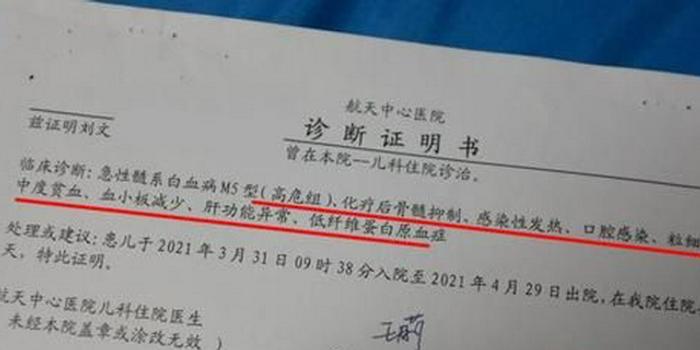 航天中心医院
诊断证明书
兹证明刘文
曾在本院一儿科住院诊治。
临床诊断：急性髓系白血病M5型(高危组)、化疗后骨髓抑制、感染性发热、口腔感染、粒细
中度贫血、血小板减少、肝功能异常、低纤维蛋白原血症
处理或建议：患儿于2021年3月31日09时38分入院至2021年4月29日出院，在我院住院
天，特此证明。
航天中心医院儿科住院医生
未经本院盖章或涂改无效 )